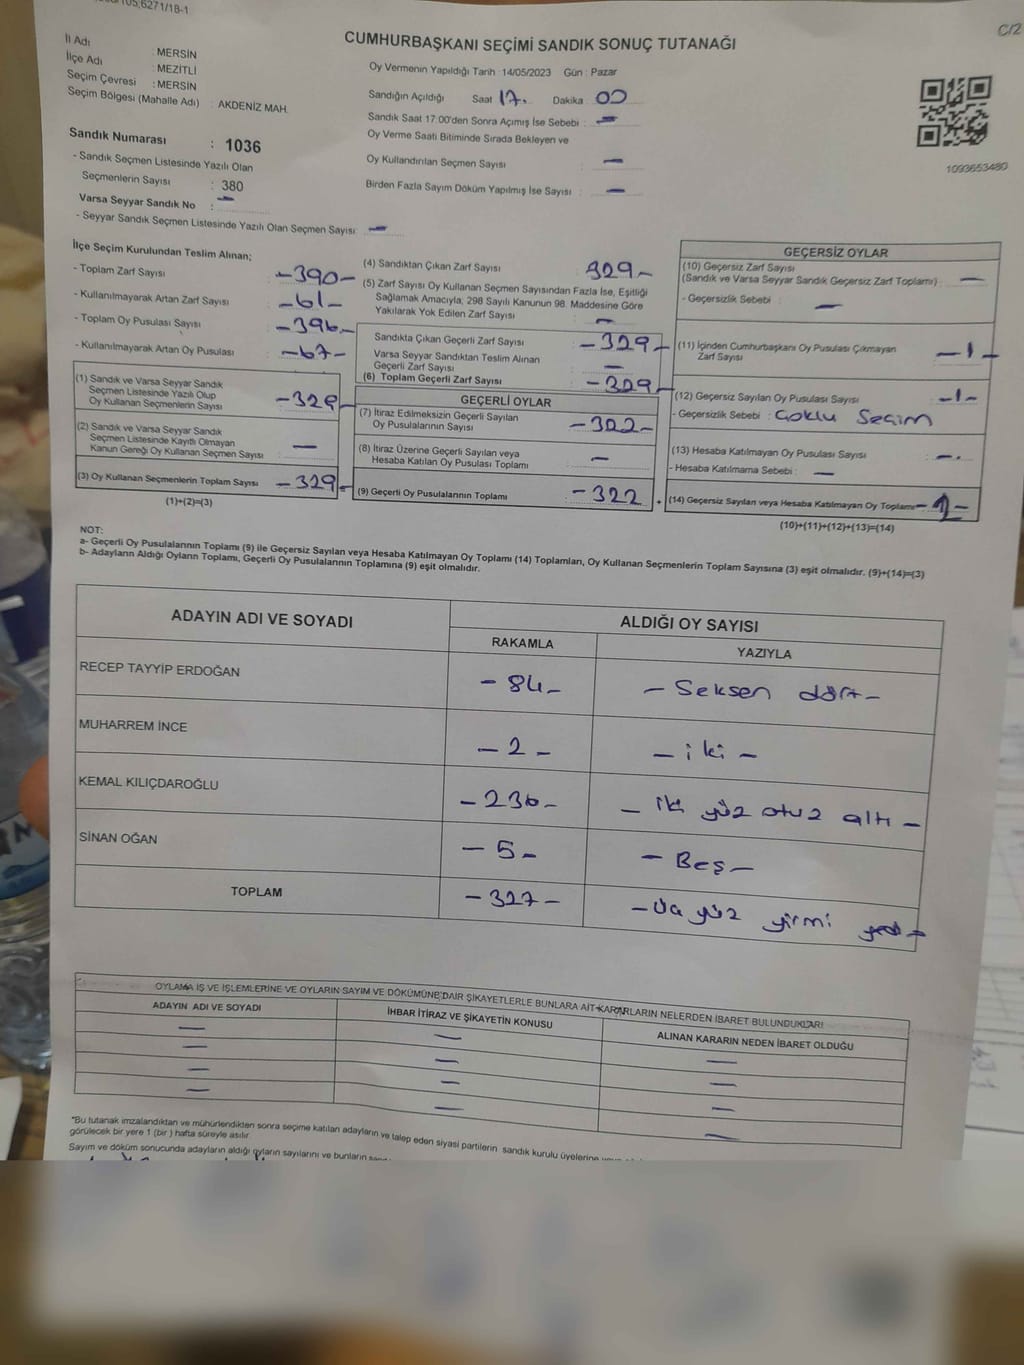 6271/18-1
C/2
CUMHURBAŞKANI SEÇİMİ SANDIK SONUÇ TUTANAĞI
İl Adı : MERSİN
İlçe Adı : MEZİTLİ
Seçim Çevresi : MERSİN
Seçim Bölgesi (Mahalle Adı) : AKDENİZ MAH.
Oy Vermenin Yapıldığı Tarih :14/05/2023 Gün : Pazar
Sandığın Açıldığı Saat 17. Dakika 00
Sandık Saat 17:00'den Sonra Açımış İse Sebebi : —
Oy Verme Saati Bitiminde Sırada Bekleyen ve
Oy Kullandırılan Seçmen Sayısı —
Birden Fazla Sayım Döküm Yapılmış İse Sayısı : —
1093653480
Sandık Numarası : 1036
- Sandık Seçmen Listesinde Yazılı Olan
Seçmenlerin Sayısı : 380
Varsa Seyyar Sandık No : —
- Seyyar Sandık Seçmen Listesinde Yazılı Olan Seçmen Sayısı: —
İlçe Seçim Kurulundan Teslim Alınan;
- Toplam Zarf Sayısı : -390-
- Kullanılmayarak Artan Zarf Sayısı : -61-
- Toplam Oy Pusulası Sayısı : -396-
- Kullanılmayarak Artan Oy Pusulası : -67-
(1) Sandık ve Varsa Seyyar Sandık
Seçmen Listesinde Yazılı Olup
Oy Kullanan Seçmenlerin Sayısı : -329-
(2) Sandık ve Varsa Seyyar Sandık
Seçmen Listesinde Kayıtlı Olmayan
Kanun Gereği Oy Kullanan Seçmen Sayısı : —
(3) Oy Kullanan Seçmenlerin Toplam Sayısı : -329-
(1)+(2)=(3)
(4) Sandıktan Çıkan Zarf Sayısı : 329-
(5) Zarf Sayısı Oy Kullanan Seçmen Sayısından Fazla İse, Eşitliği
Sağlamak Amacıyla; 298 Sayılı Kanunun 98. Maddesine Göre
Yakılarak Yok Edilen Zarf Sayısı : —
Sandıkta Çıkan Geçerli Zarf Sayısı : -329-
Varsa Seyyar Sandıktan Teslim Alınan
Geçerli Zarf Sayısı : —
(6) Toplam Geçerli Zarf Sayısı : -329-
GEÇERLİ OYLAR
(7) İtiraz Edilmeksizin Geçerli Sayılan
Oy Pusulalarının Sayısı : -322-
(8) İtiraz Üzerine Geçerli Sayılan veya
Hesaba Katılan Oy Pusulası Toplamı : —
(9) Geçerli Oy Pusulalarının Toplamı : -322
GEÇERSİZ OYLAR
(10) Geçersiz Zarf Sayısı
(Sandık ve Varsa Seyyar Sandık Geçersiz Zarf Toplamı) : —
- Geçersizlik Sebebi : —
(11) İçinden Cumhurbaşkanı Oy Pusulası Çıkmayan
Zarf Sayısı : -1-
(12) Geçersiz Sayılan Oy Pusulası Sayısı : -1-
- Geçersizlik Sebebi : Çoklu Seçim
(13) Hesaba Katılmayan Oy Pusulası Sayısı : —
- Hesaba Katılmama Sebebi : —
(14) Geçersiz Sayılan veya Hesaba Katılmayan Oy Toplamı -2-
(10)+(11)+(12)+(13)=(14)
NOT:
a- Geçerli Oy Pusulalarının Toplamı (9) ile Geçersiz Sayılan veya Hesaba Katılmayan Oy Toplamı (14) Toplamları, Oy Kullanan Seçmenlerin Toplam Sayısına (3) eşit olmalıdır. (9)+(14)=(3)
b- Adayların Aldığı Oyların Toplamı, Geçerli Oy Pusulalarının Toplamına (9) eşit olmalıdır.
ADAYIN ADI VE SOYADI ALDIĞI OY SAYISI
RAKAMLA YAZIYLA
RECEP TAYYİP ERDOĞAN -84- - Seksen dört -
MUHARREM İNCE -2- - iki -
KEMAL KILIÇDAROĞLU -236- - iki yüz otuz altı -
SİNAN OĞAN -5- - Beş -
TOPLAM -327- - Üç yüz yirmi yedi -
OYLAMA İŞ VE İŞLEMLERİNE VE OYLARIN SAYIM VE DÖKÜMÜNE DAİR ŞİKAYETLERLE BUNLARA AİT KARARLARIN NELERDEN İBARET BULUNDUKLARI
ADAYIN ADI VE SOYADI İHBAR İTİRAZ VE ŞİKAYETİN KONUSU ALINAN KARARIN NEDEN İBARET OLDUĞU
— — —
— — —
— — —
— — —
*Bu tutanak imzalandıktan ve mühürlendikten sonra seçime katılan adayların ve talep eden siyasi partilerin sandık kurulu üyelerine
görülecek bir yere 1 (bir) hafta süreyle asılır.
Sayım ve döküm sonucunda adayların aldığı oyların sayılarını ve bunların